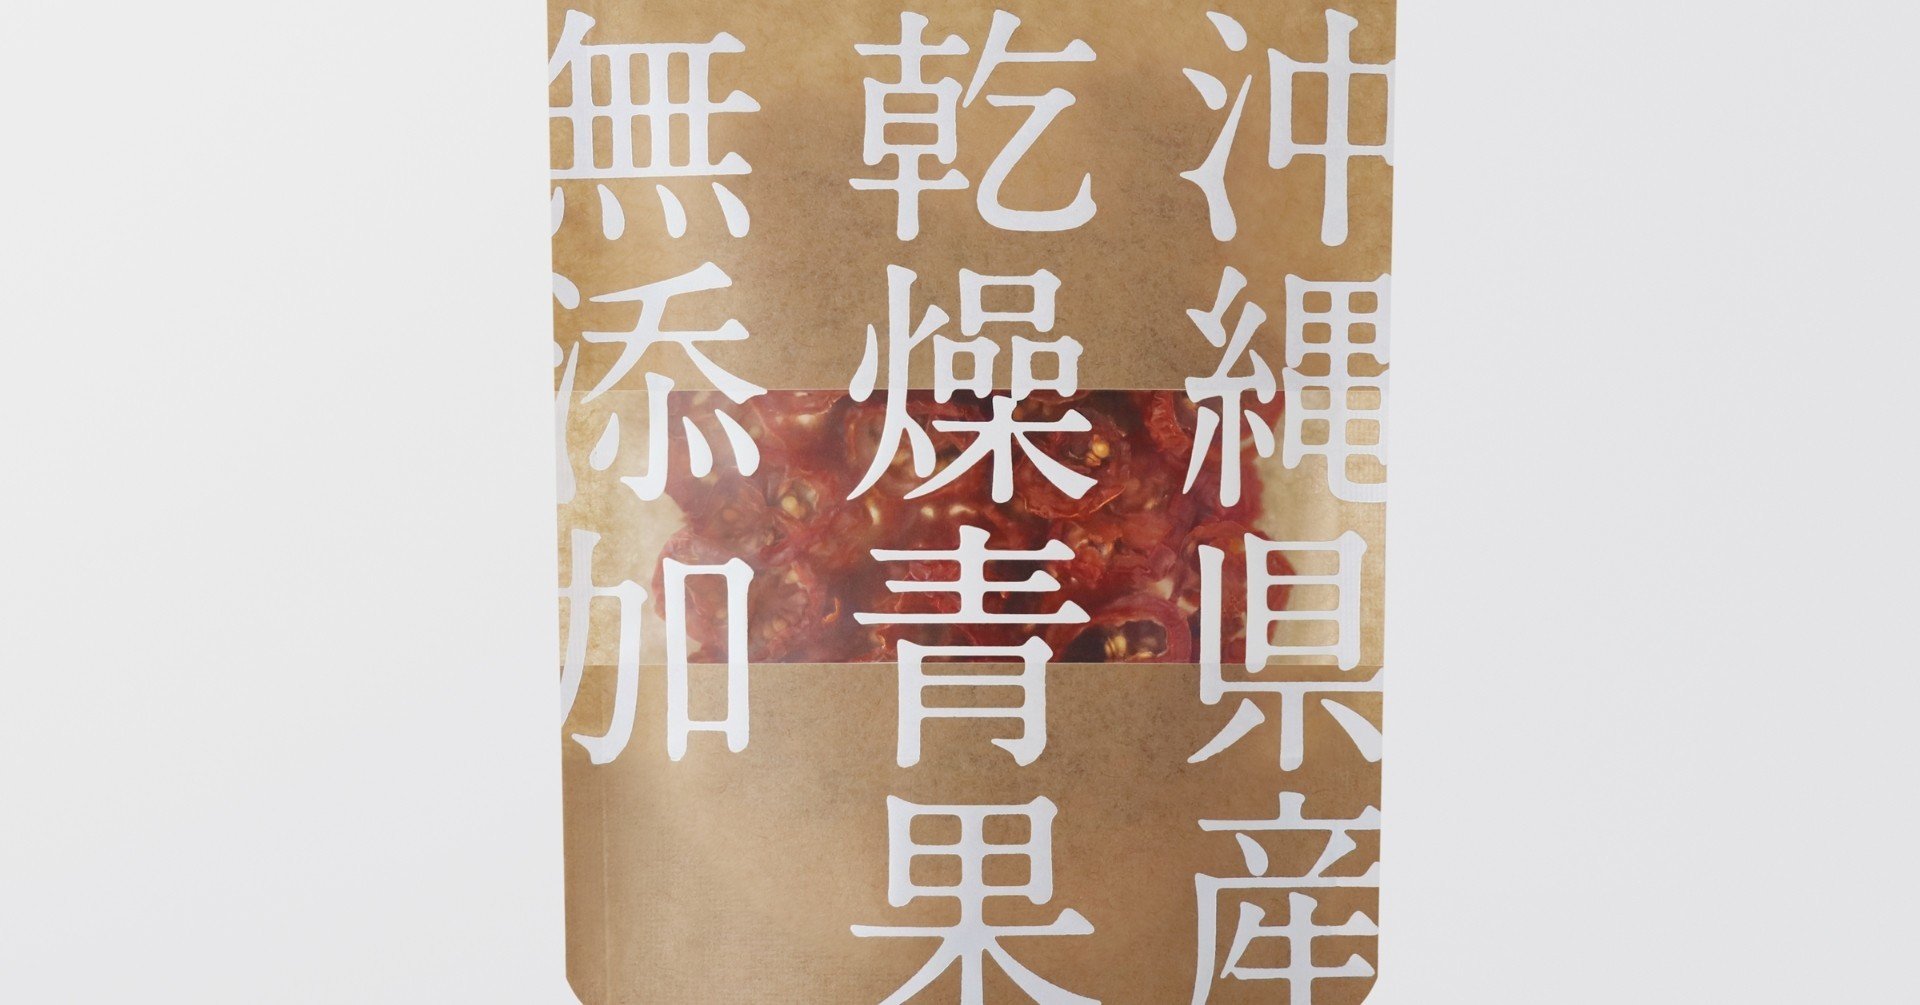 沖縄県産
乾燥青果
無添加